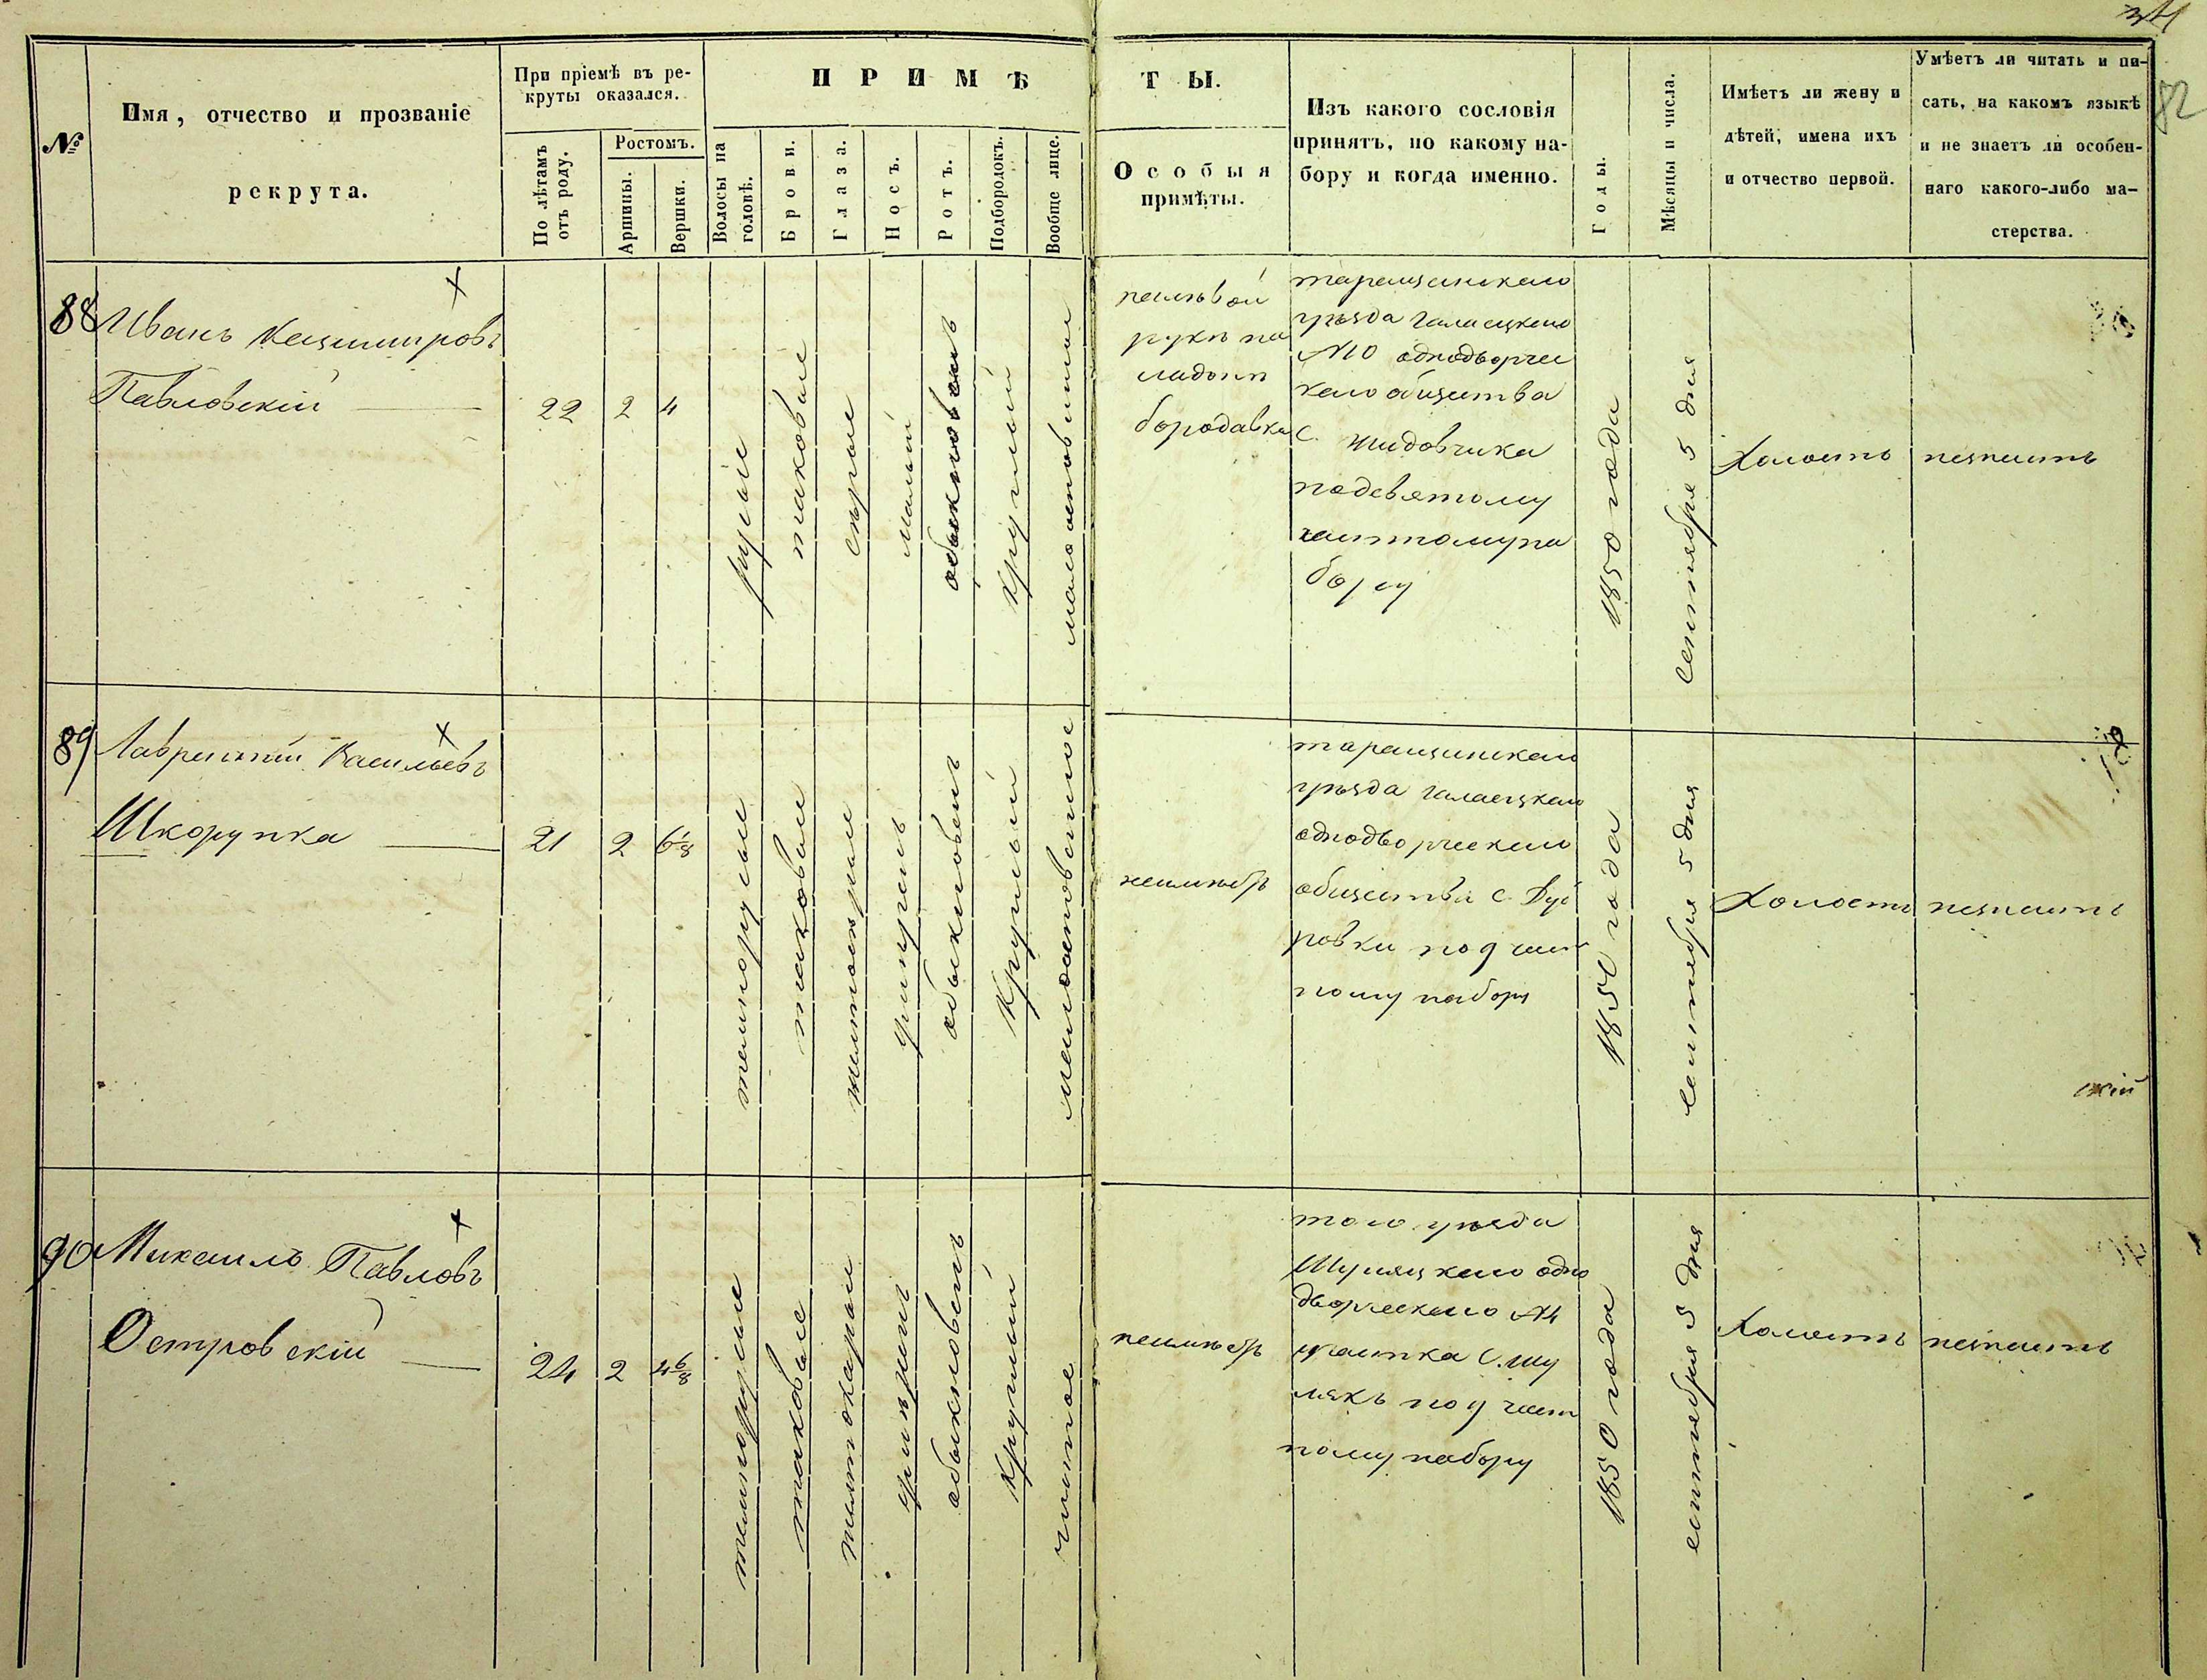 34
82
№
Имя, отчество и прозваніе
рекрута.
При пріемѣ въ ре-
круты оказался.
По лѣтамъ
отъ роду.
Ростомъ.
Аршины.
Вершки.
ПРИМѢ
Волосы на
головѣ.
Брови.
Глаза.
Носъ.
Ротъ.
Подбородокъ.
Вообще лице.
ТЫ.
Особыя
примѣты.
Изъ какого сословія
принятъ, по какому на-
бору и когда именно.
Годы.
Мѣсяцы и числа.
Имѣетъ ли жену и
дѣтей, имена ихъ
и отчество первой.
Умѣетъ ли читать и пи-
сать, на какомъ языкѣ
и не знаетъ ли особен-
наго какого-либо ма-
стерства.
88
Иванъ Казимировъ
Павловскій
22
2
4
русые
таковые
сѣрые
малый
обыкновенъ
круглый
малооспов
на лѣвой
рукѣ на
ладони
бородавка
таращанскаго
уѣзда галаецкого
№10 однодворчес
каго общества
с. жидовчика
по девятому
частному на
бору
1850 года
сентября 5 дня
Холостъ
незнаитъ
89
Лаврентій Васильевъ
Шкорупка
21
2
6 1/8
темнорусые
таковые
умѣренъ
обыкновенъ
круглый
неимѣетъ
таращанскаго
уѣзда галаецкаго
однодворческаго
общества с. Дуб
ровки по 9 част
ному набору
1850 года
сентября 5 дня
Холостъ
незнаитъ
скій
90
Михаилъ Павловъ
Островскій
24
2
4 6/8
темнорусые
таковые
умѣренъ
обыкновенъ
круглый
чистое
неимѣетъ
того уѣзда
Шуляцкаго одно
дворческаго №4
участка с. шу
лякъ по 9 част
ному набору
1850 года
сентября 5 дня
Холостъ
незнаитъ